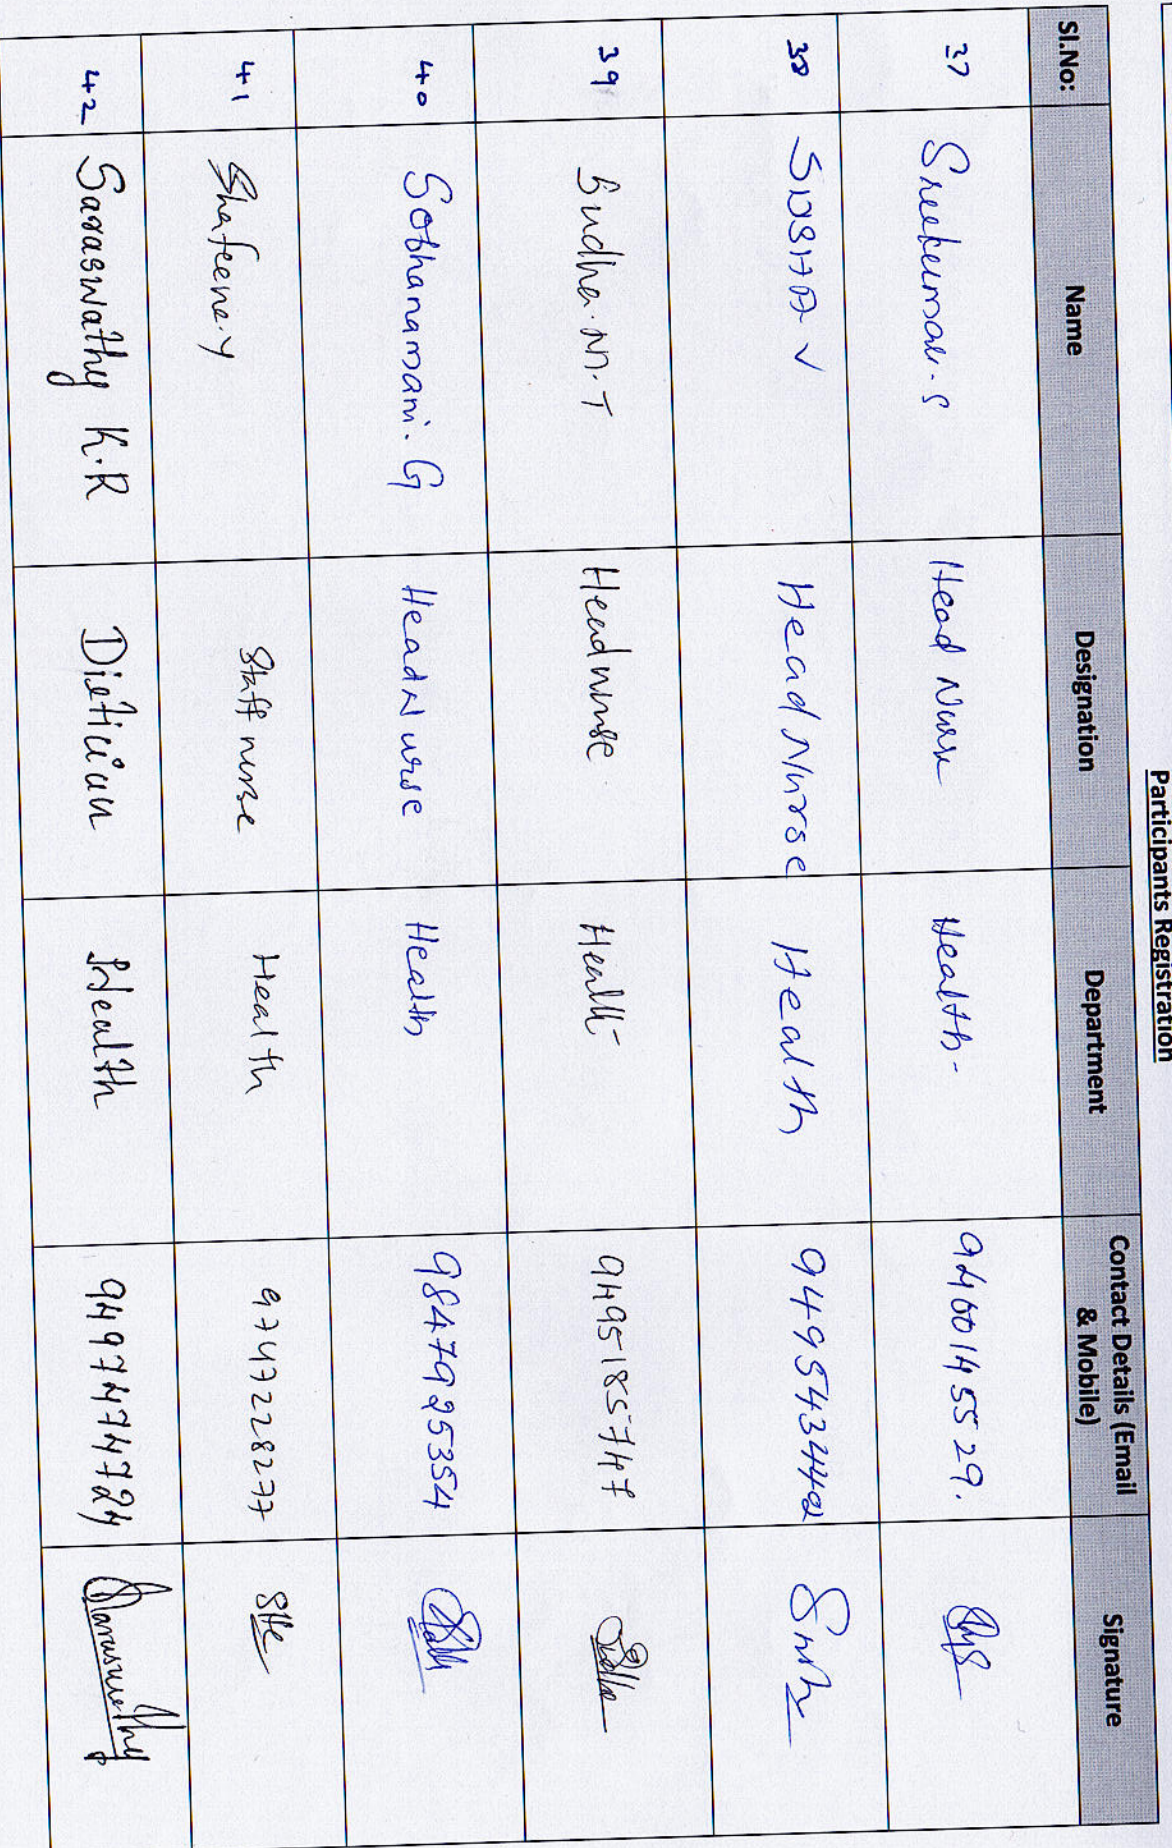 Participants Registration
Sl.No: Name Designation Department Contact Details (Email & Mobile) Signature
37 Sreekumari.S Head Nurse Health- 9400145529.
38 Head Nurse Health
39 Sudha.M.T Headnurse Health 9495185747
40 Sobhanamani.G Head Nurse Health 9847925354
41 Shafeena.Y Staff nurse Health 9747228277
42 Saraswathy K.R Dietician Health 9497474724